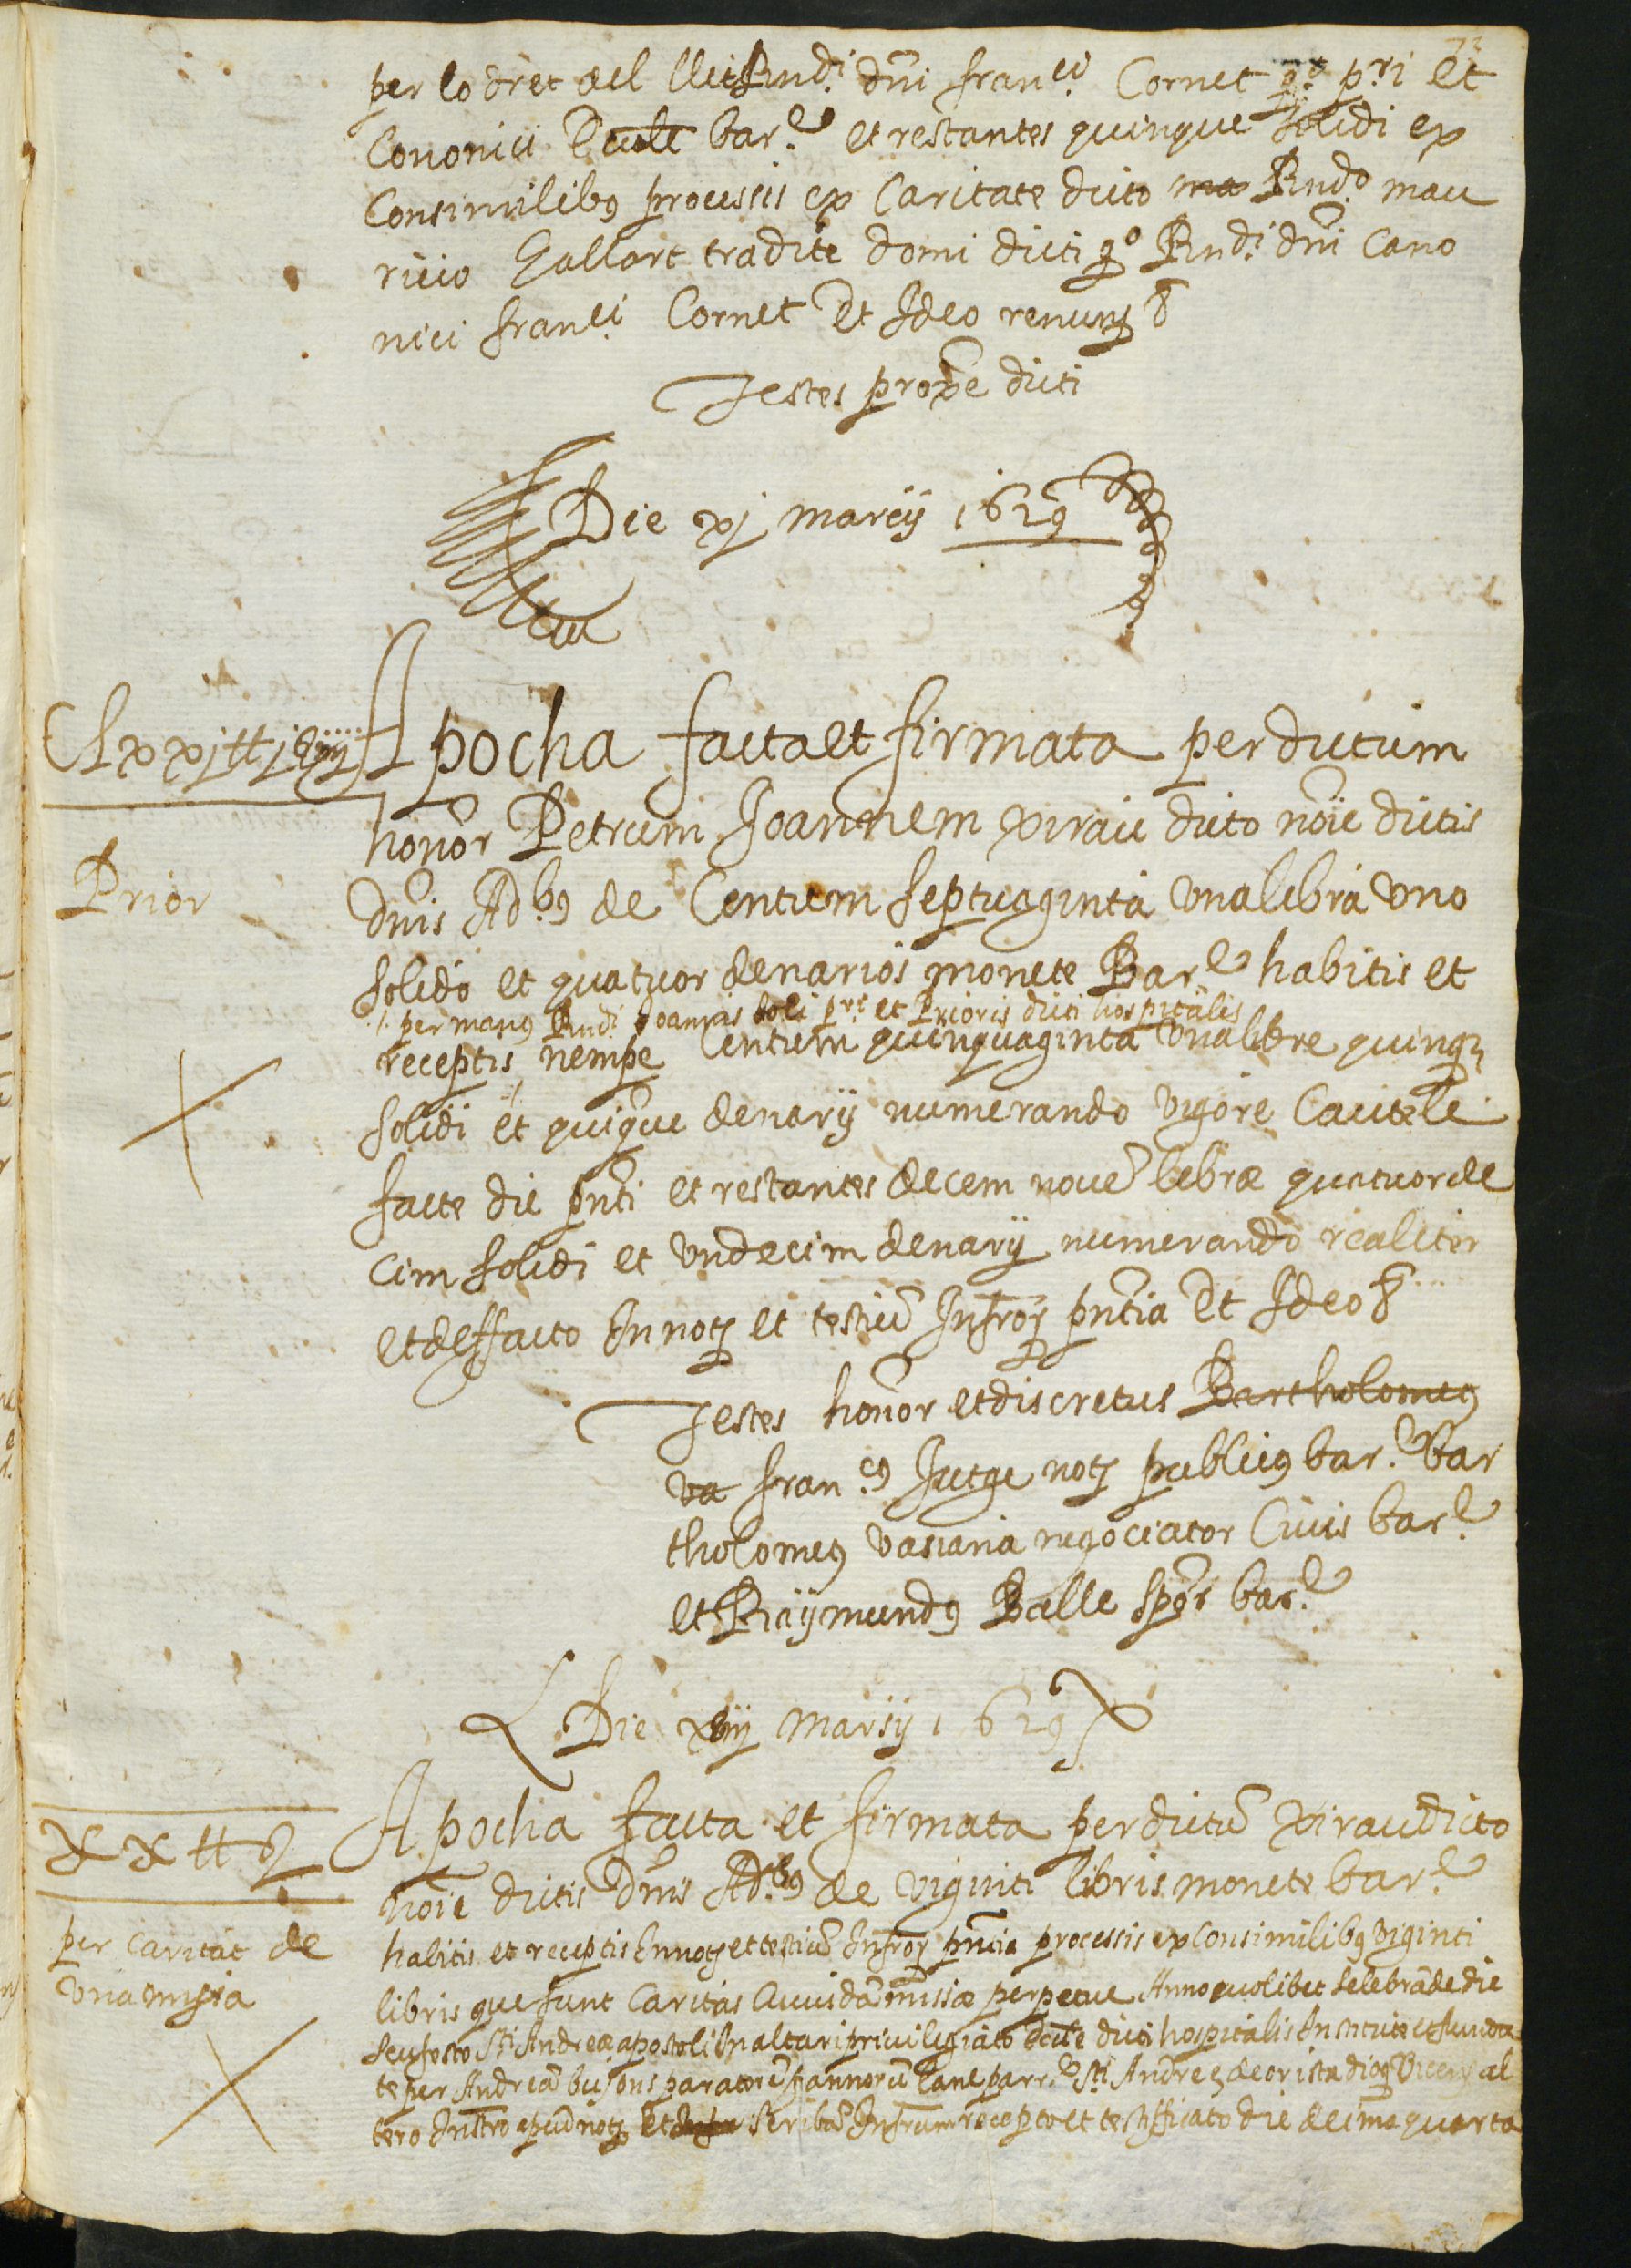 72
per lo dret del llit Rndi dni franci Cornet qo pri et
Cononici Eccle bare et restantes quinque solidi ex
Consimilibus processis ex Caritate dicto ma Rndo mau
ricio Gallart tradite domi dicti qo Rndi dni Cano
nici franci Cornet Et Ideo renuns &
Testes proxe dicti
Die xj marcij 1629
Clxxj tt j s iiij
Apocha facta et firmata per dictum
honor Petrum Joannem Xirau dicto noie dictis
Prior
dnis Adbus de Centum septuaginta una libra uno
solido et quatuor denarios monete Bare habitis et
/. per manus Rndi Joannis soli pri et Prioris dicti hospitalis
receptis, nempe Centum quinquaginta una libre quinqz
solidi et quique denarij numerando vigore Cautele
facte die pnti et restantes decem nove libræ quatuorde
cim solidi et undecim denarij numerando realiter
et de ffacto In notz et testiu Infror pntia Et Ideo &
Testes honor et discretus Bartholomeus
va francus Jutge notz publicus bare bar
tholomeus vasiana negociator Civis bare
et Raymundus Balle spor bare
Die xiij marsij 1629
xx tt s
Apocha facta et firmata per dictu Xirau dicto
noie dictis dnis Adbus de viginti libris monete bare
per caritat de
una missa
habitis et receptis In notz et testiu Infror pntia processis ex Consimilibus viginti
libris que sunt Caritas Cuiusda missæ perpetue Anno quolibet Selebrade die
seu festo Sti Andreæ apostoli In altari privilegiato eccle dicti hospitalis Institute et fundta
te per Andrea busons paratore pannoru lane parre Sti Andree de oristà diog Vicen al
tero Instro apud notz et Infra scriba Infrum recepto et testifficato die decima quarta